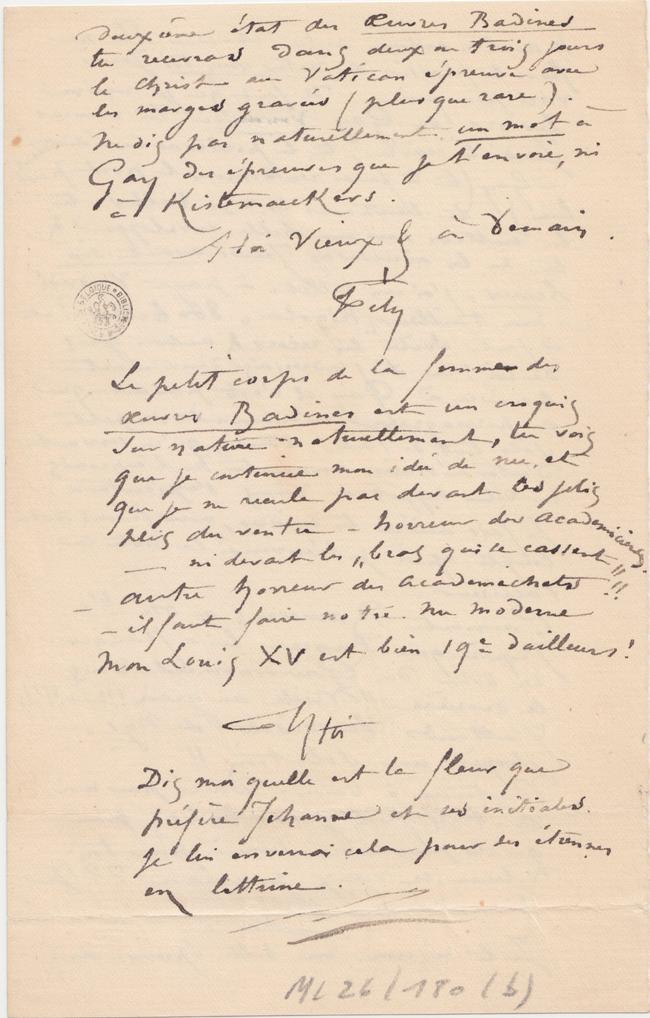 Deuxième état des Œuvres Badines
tu recevras dans deux ou trois jours
le Christ au Vatican épreuve avec
les marges gravées (plus que rare).
Ne dis pas naturellement un mot à
Gay des épreuves que je t'envoie, ni
à Kistemaeckers.
à toi Vieux & à Demain.
Fély
BELGIQUE
Le petit corps de la femme des
œuvres Badines est un croquis
sur nature naturellement, tu vois
que je continue mon idée de nu, et
que je ne recule pas devant les jolis
plis du ventre – horreur des academiciens,
— ni devant les „bras qui se cassent„!!
– autre horreur des Academichets !!
– il faut faire notre nu moderne
Mon Louis XV est bien 19e d'ailleurs!
à toi
Dis moi quelle est la fleur que
préfère Jehanne et ses initiales.
Je lui enverrai cela pour ses étrennes
en lettrine.
ML 26/180 (b)